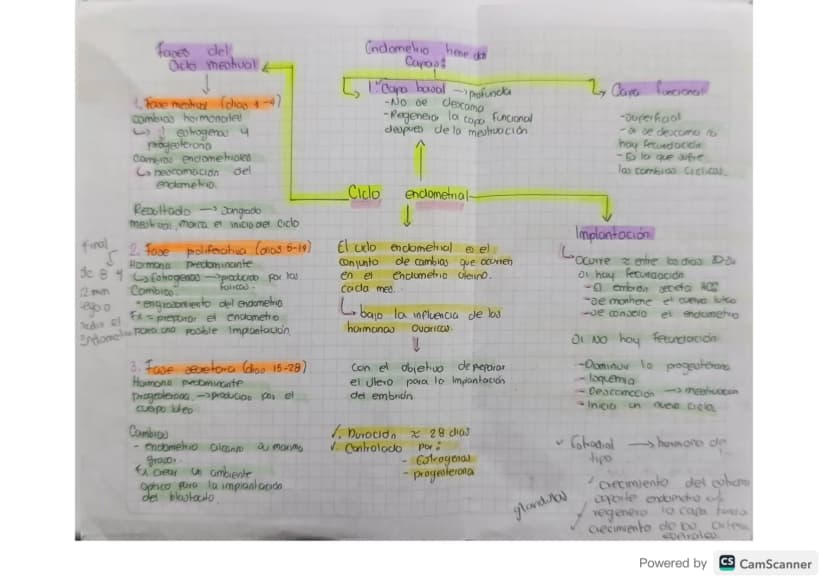 Fases del
Ciclo mestrual
1. Fase mestrual (dias 1-4)
cambios hormonales
↳ ↓ estrogenos y
progesterona
cambios endometriales
↳ Descamación del
endometrio.
Resultado → sangrado
mestrual, marca el inicio del ciclo
2. Fase poliferativa (dias 5-14)
Hormona predominante
↳ Estrogenos → producido por los
foliculos.
Cambios
- engrosamiento del endometrio
Ex = preparar el endometrio
para una posible implantación
final
de 8 y
12 mm
3. Fase secretora (dias 15-28)
Hormona predominante
progesterona, → producida por el
cuerpo luteo
Cambios
- endometrio alcanza su maximo
grosor.
Ex crear un ambiente
optico para la implantación
del blastocito
Endometrio tiene dos
Capas:
1. Capa basal → profunda
- No se descama
- Regenera la capa funcional
despues de la mestruación
Capa funcional
- superficial
- si se descama no
hay fecundación
- Es la que sufre
los cambios ciclicos.
Ciclo endometrial
El ciclo endometrial es el
conjunto de cambios que ocurren
en el endometrio uterino.
cada mes.
↳ bajo la influencia de las
hormonas ovaricas.
Con el objetivo de preparar
el utero para la implantación
del embrión.
Duración ≈ 28 dias
Controlado por:
- Estrogenos
- progesterona
Implantación
↳ Ocurre ≈ entre los dias
si hay fecundación
- El embrión secreta
- Se mantiene el cuerpo luteo
- se conserva el endometrio
Si NO hay fecundación
- Disminuye la progesterona
- Isquemia
- Descamación → mestruación
- Inicia un nuevo ciclo
✓ Estradiol → hormona de
tipo
✓ crecimiento del
endometrio
regenera la capa
✓ crecimiento de
glandulas
Powered by CS CamScanner